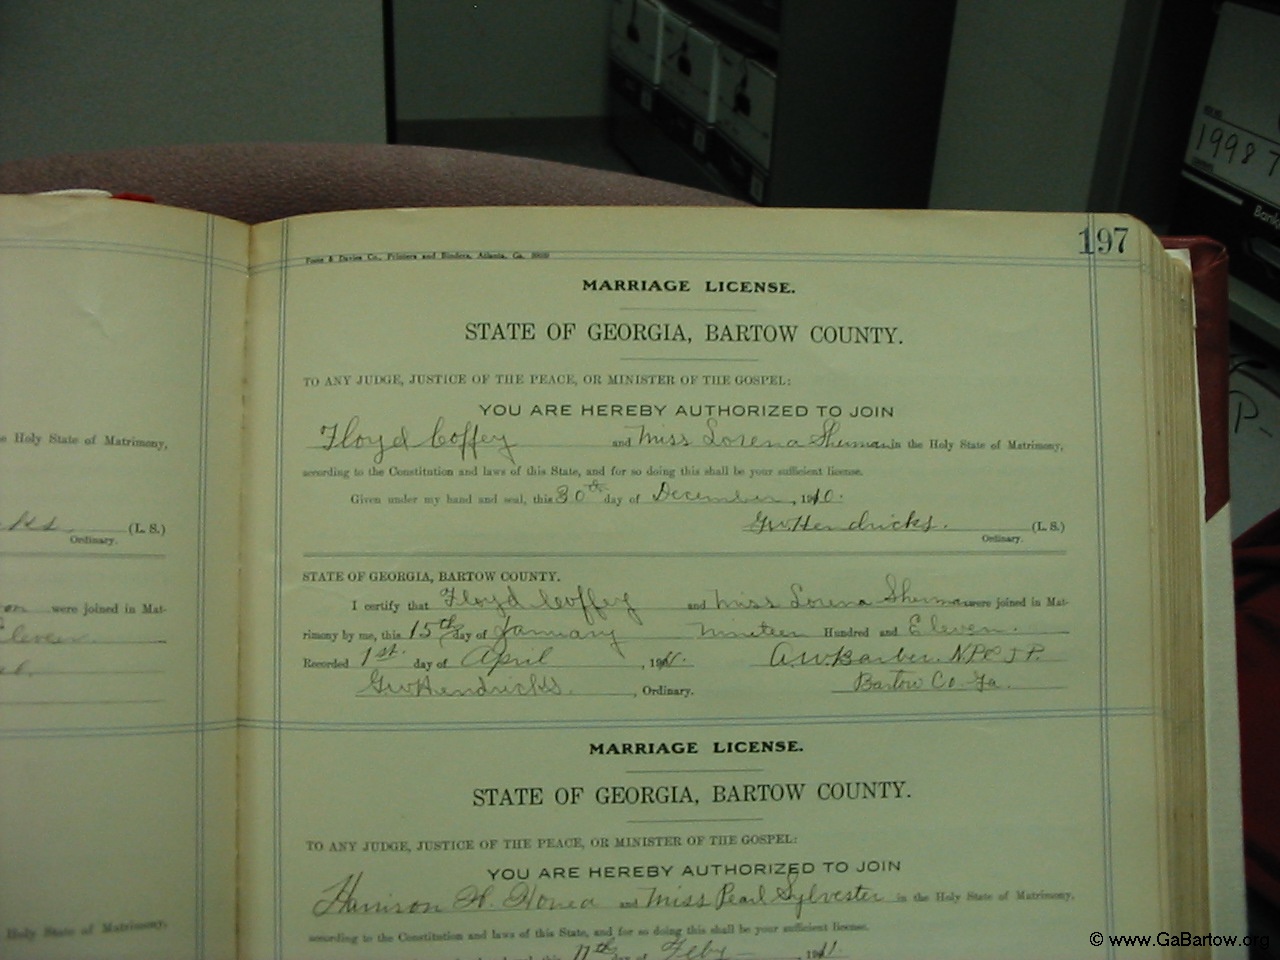 1998
197
Foote & Davies Co., Printers and Binders, Atlanta, Ga.
MARRIAGE LICENSE.
STATE OF GEORGIA, BARTOW COUNTY.
TO ANY JUDGE, JUSTICE OF THE PEACE, OR MINISTER OF THE GOSPEL:
YOU ARE HEREBY AUTHORIZED TO JOIN
Floyd Coffey and Miss Lorena Sherman in the Holy State of Matrimony,
according to the Constitution and laws of this State, and for so doing this shall be your sufficient license.
Given under my hand and seal, this 30th day of December, 1910.
GW Hendricks. (L. S.)
Ordinary.
STATE OF GEORGIA, BARTOW COUNTY.
I certify that Floyd Coffey and Miss Lorena Sherman were joined in Mat-
rimony by me, this 15th day of January Nineteen Hundred and Eleven.
Recorded 1st. day of April, 1911. A.W. Barber. NP & J P.
GW Hendricks., Ordinary. Bartow Co. Ga.
MARRIAGE LICENSE.
STATE OF GEORGIA, BARTOW COUNTY.
TO ANY JUDGE, JUSTICE OF THE PEACE, OR MINISTER OF THE GOSPEL:
YOU ARE HEREBY AUTHORIZED TO JOIN
Harrison H. Honea and Miss Pearl Sylvester in the Holy State of Matrimony,
according to the Constitution and laws of this State, and for so doing this shall be your sufficient license.
11th day of Feby 1911.
Holy State of Matrimony,
(L. S.)
Ordinary.
were joined in Mat-
Eleven
Holy State of Matrimony,
© www.GaBartow.org